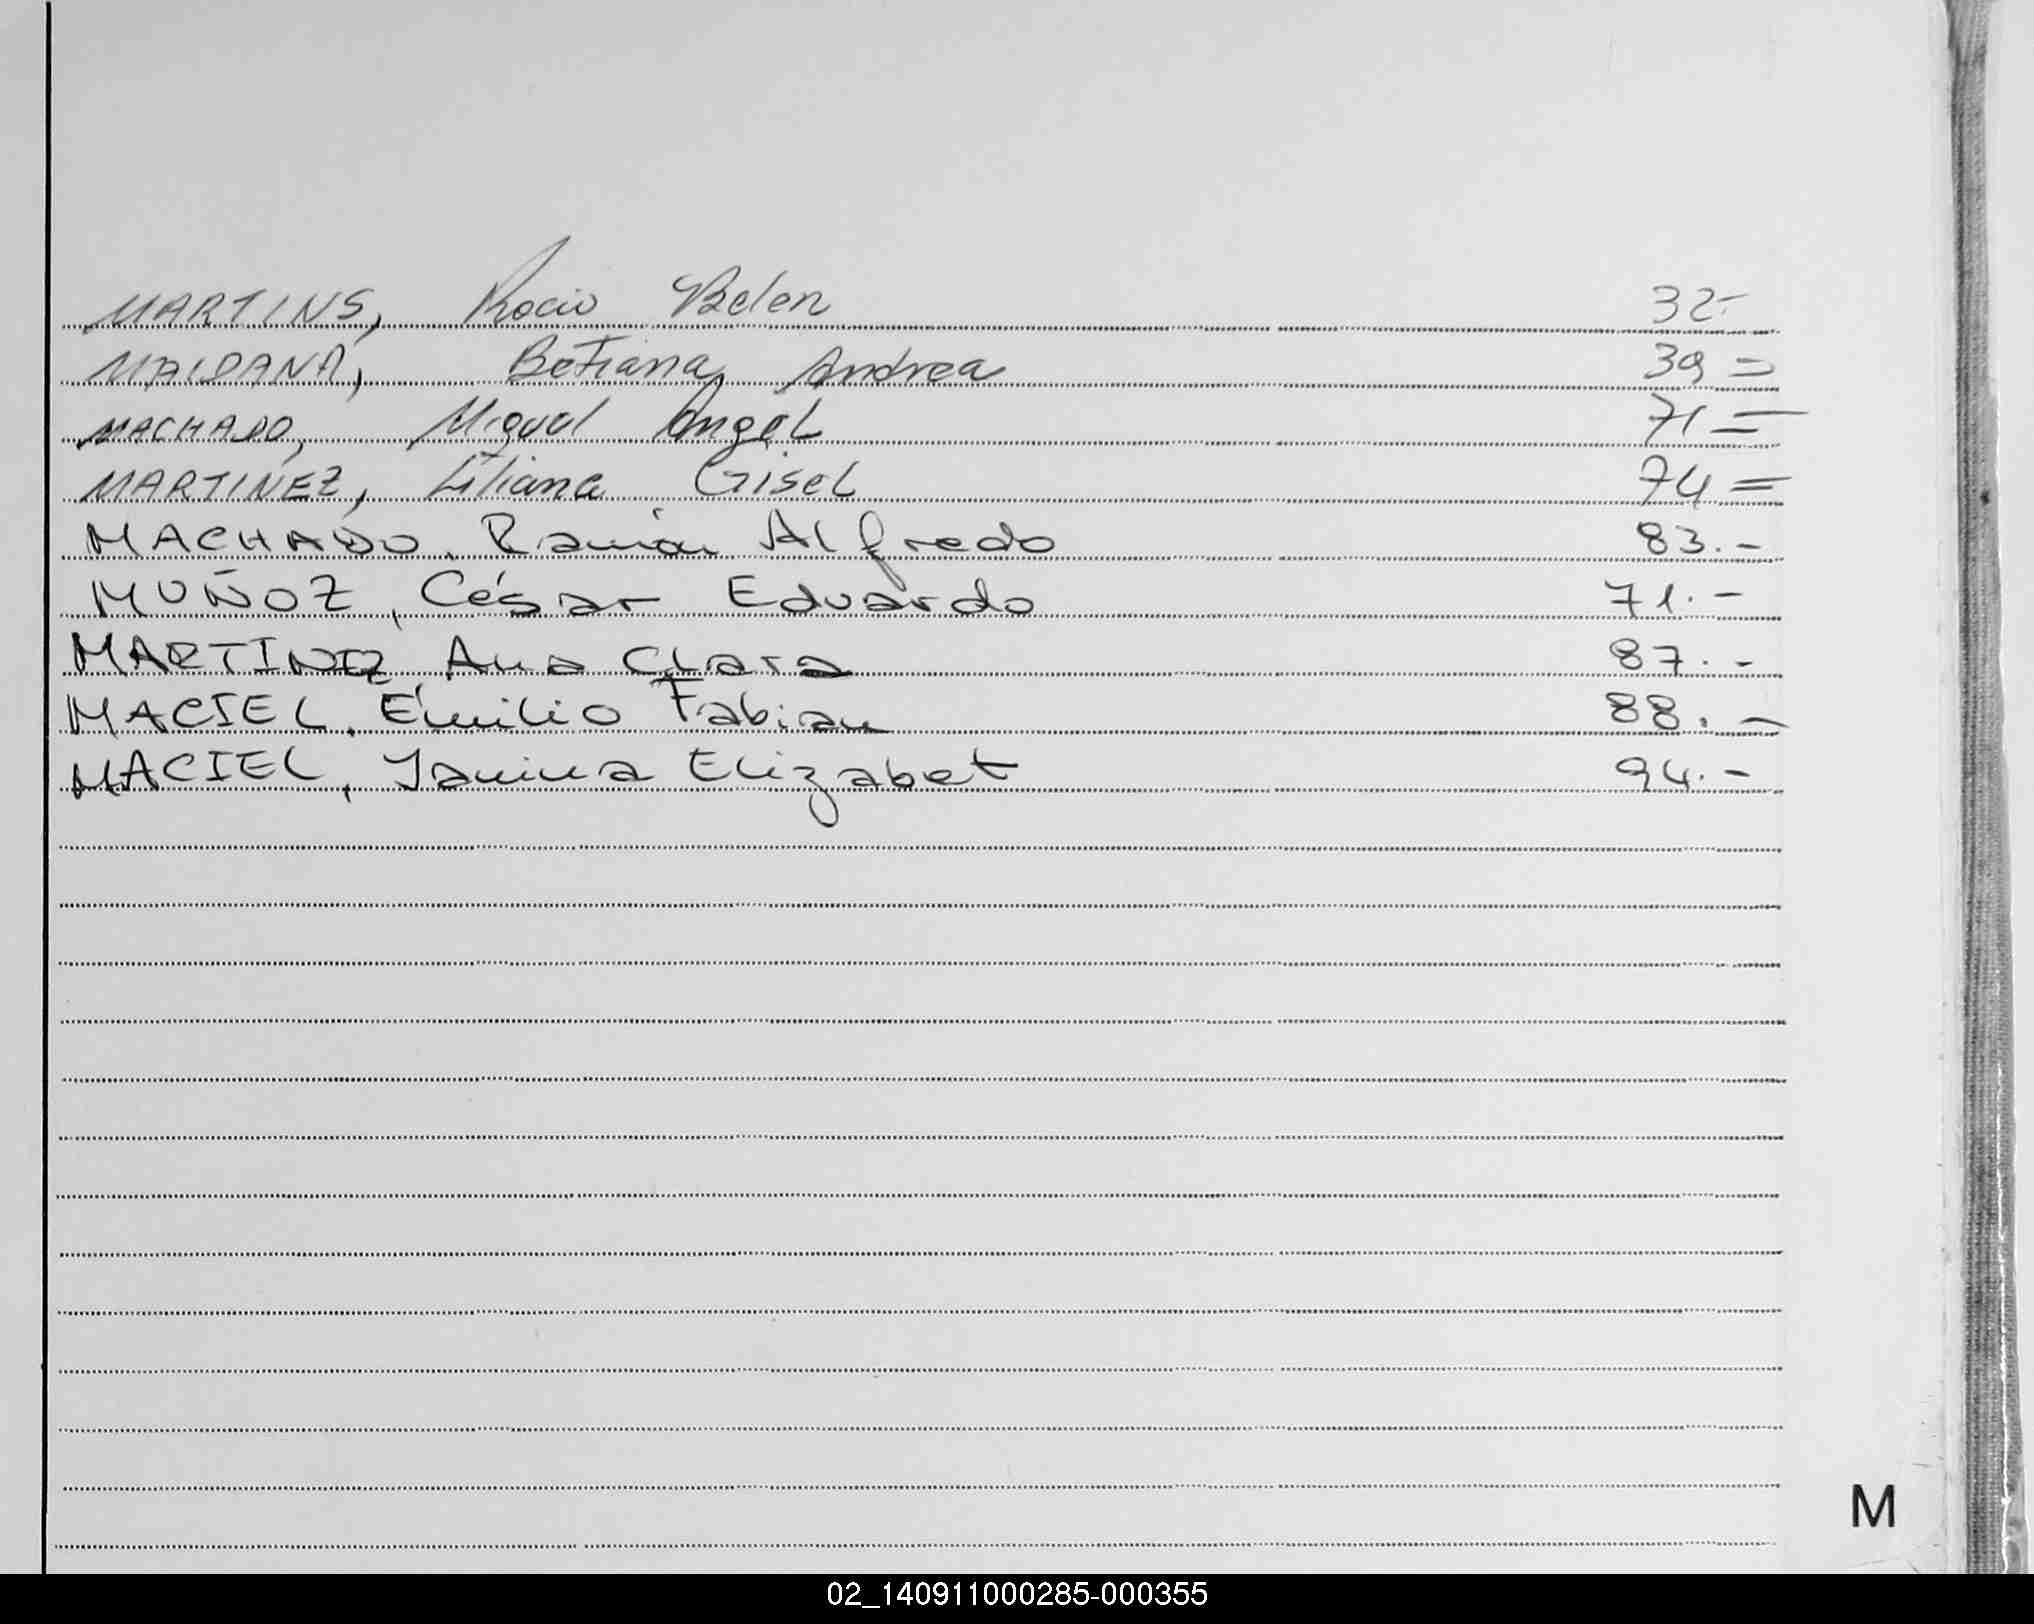 MARTINS, Rocio Belen 32.-
MALDANA, Betiana Andrea 39=
MACHADO, Miguel Angel 71=
MARTINEZ, Liliana Gisel 74=
MACHADO. Ramón Alfredo 83.-
MUÑOZ, César Eduardo 71.-
MARTINEZ Ana Clara 87.-
MACIEL, Emilio Fabian 88.-
MACIEL, Yanina Elizabet 94.-
M
02_140911000285-000355